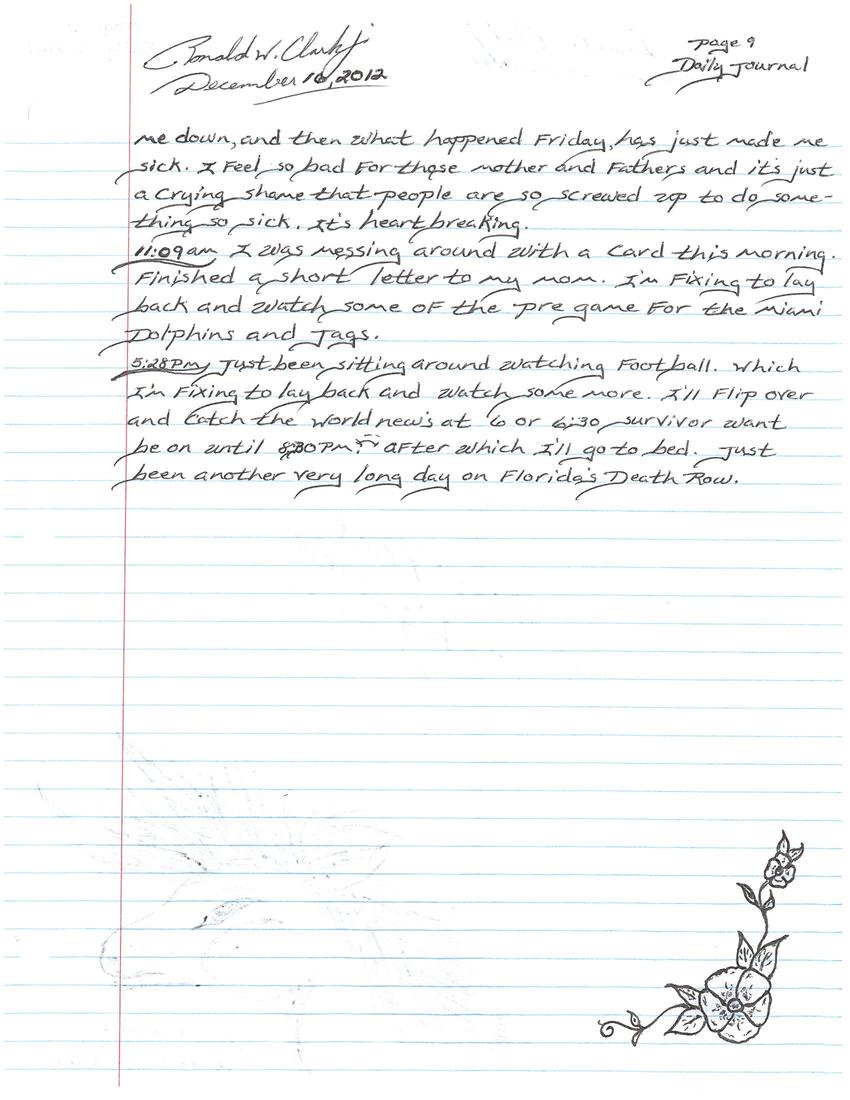 Ronald W. Clark Jr
December 16, 2012
page 9
Daily Journal
me down, and then what happened Friday, has just made me
sick. I Feel so bad For those mother and Fathers and it's just
a crying shame that people are so screwed up to do some-
thing so sick. It's heart breaking.
11:09am I was messing around with a card this morning.
Finished a short letter to my mom. I'm Fixing to lay
back and watch some of the pre game For the miami
Dolphins and Jags.
5:28pm Just been sitting around watching Football. Which
I'm Fixing to lay back and watch some more. I'll Flip over
and catch the world new's at 6 or 6:30, survivor want
be on until 8:30pm. After which I'll go to bed. Just
been another very long day on Florida's Death Row.